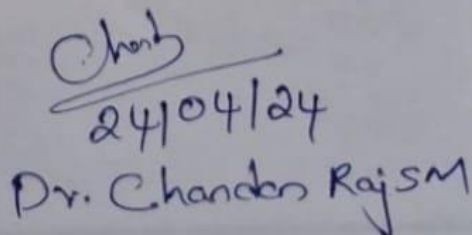 24/04/24
Dr. Chandan Raj SM